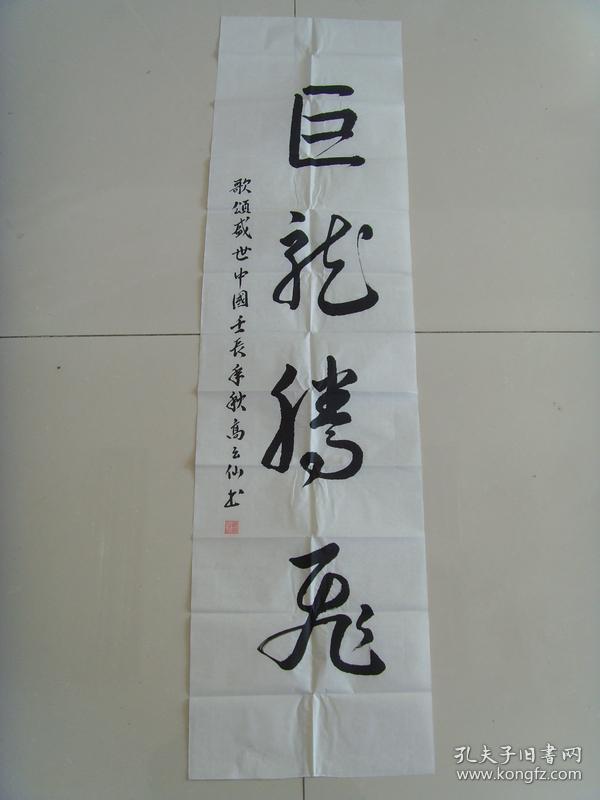 巨龙腾飞
歌頌盛世中國壬辰年秋高云仙书
孔夫子旧书网
www.kongfz.com